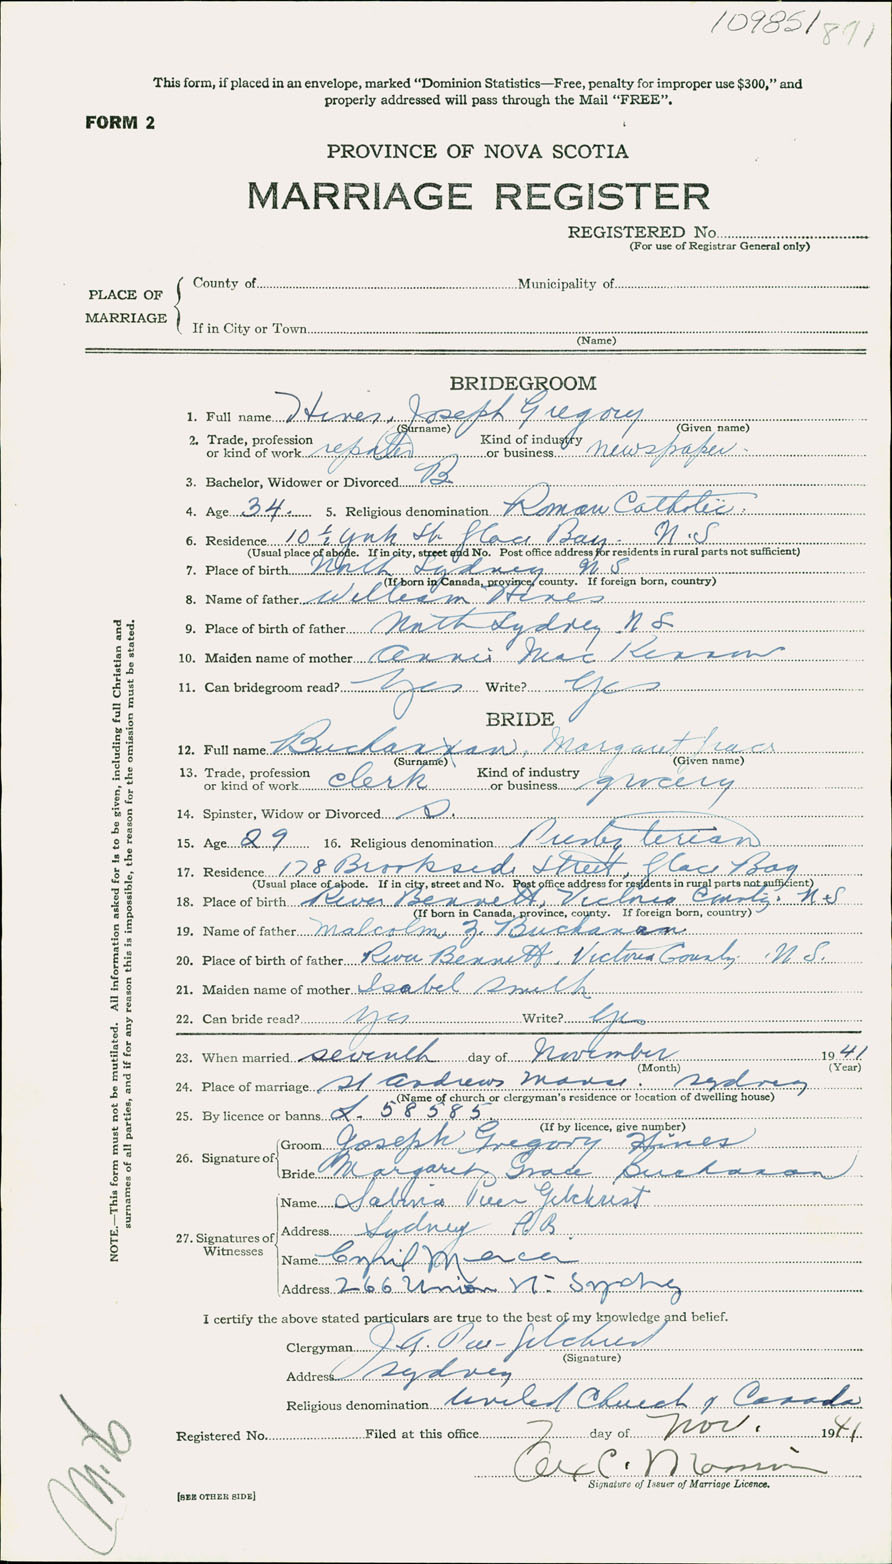 109851 891
This form, if placed in an envelope, marked “Dominion Statistics—Free, penalty for improper use $300,” and
properly addressed will pass through the Mail “FREE”.
FORM 2
PROVINCE OF NOVA SCOTIA
MARRIAGE REGISTER
REGISTERED No.
(For use of Registrar General only)
PLACE OF MARRIAGE
County of Municipality of
If in City or Town
(Name)
BRIDEGROOM
1. Full name Hines, Joseph Gregory
(Surname) (Given name)
2. Trade, profession or kind of work reporter Kind of industry or business newspaper.
3. Bachelor, Widower or Divorced B
4. Age 34. 5. Religious denomination Roman Catholic.
6. Residence 10 ½ York St. Glace Bay. N.S
(Usual place of abode. If in city, street and No. Post office address for residents in rural parts not sufficient)
7. Place of birth North Sydney N.S
(If born in Canada, province, county. If foreign born, country)
8. Name of father William Hines
9. Place of birth of father North Sydney N S
10. Maiden name of mother Annie Mac Kinnon
11. Can bridegroom read? Yes Write? Yes
BRIDE
12. Full name Buchanan, Margaret Grace
(Surname) (Given name)
13. Trade, profession or kind of work clerk Kind of industry or business grocery
14. Spinster, Widow or Divorced S.
15. Age 29 16. Religious denomination Presbyterian
17. Residence 178 Brookside Street, Glace Bay
(Usual place of abode. If in city, street and No. Post office address for residents in rural parts not sufficient)
18. Place of birth River Bennett, Victoria County. N.S
(If born in Canada, province, county. If foreign born, country)
19. Name of father Malcolm Z. Buchanan
20. Place of birth of father River Bennett, Victoria County. N.S.
21. Maiden name of mother Isabel Smith
22. Can bride read? yes Write? yes
23. When married seventh day of November 1941
(Month) (Year)
24. Place of marriage St Andrews Manse. Sydney
(Name of church or clergyman's residence or location of dwelling house)
25. By licence or banns L. 58585
(If by licence, give number)
26. Signature of
Groom Joseph Gregory Hines
Bride Margaret Grace Buchanan
27. Signatures of Witnesses
Name Sabina Puer Gilchrist
Address Sydney
Name Cyril Mercer
Address 266 Union St. Sydney
I certify the above stated particulars are true to the best of my knowledge and belief.
Clergyman
(Signature)
Address Sydney
Religious denomination United Church of Canada
Registered No. Filed at this office 7 day of Nov. 1941.
Signature of Issuer of Marriage Licence.
[SEE OTHER SIDE]
NOTE.—This form must not be mutilated. All information asked for is to be given, including full Christian and
surnames of all parties, and if for any reason this is impossible, the reason for the omission must be stated.